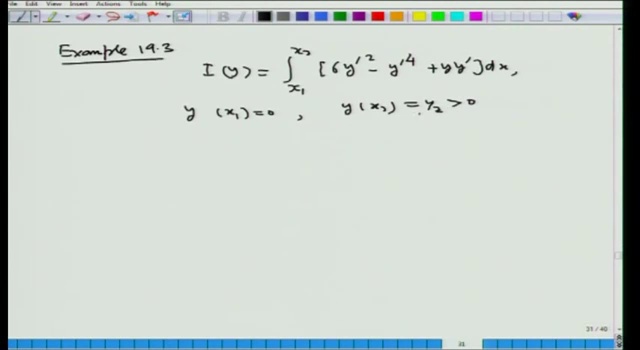 Edit View Insert Actions Tools Help
Example 19.3
I(y) = ∫_{x₁}^{x₂} [6y'² - y'⁴ + yy'] dx,
y (x₁) = 0 , y(x₂) = y₂ > 0
31 / 40
31